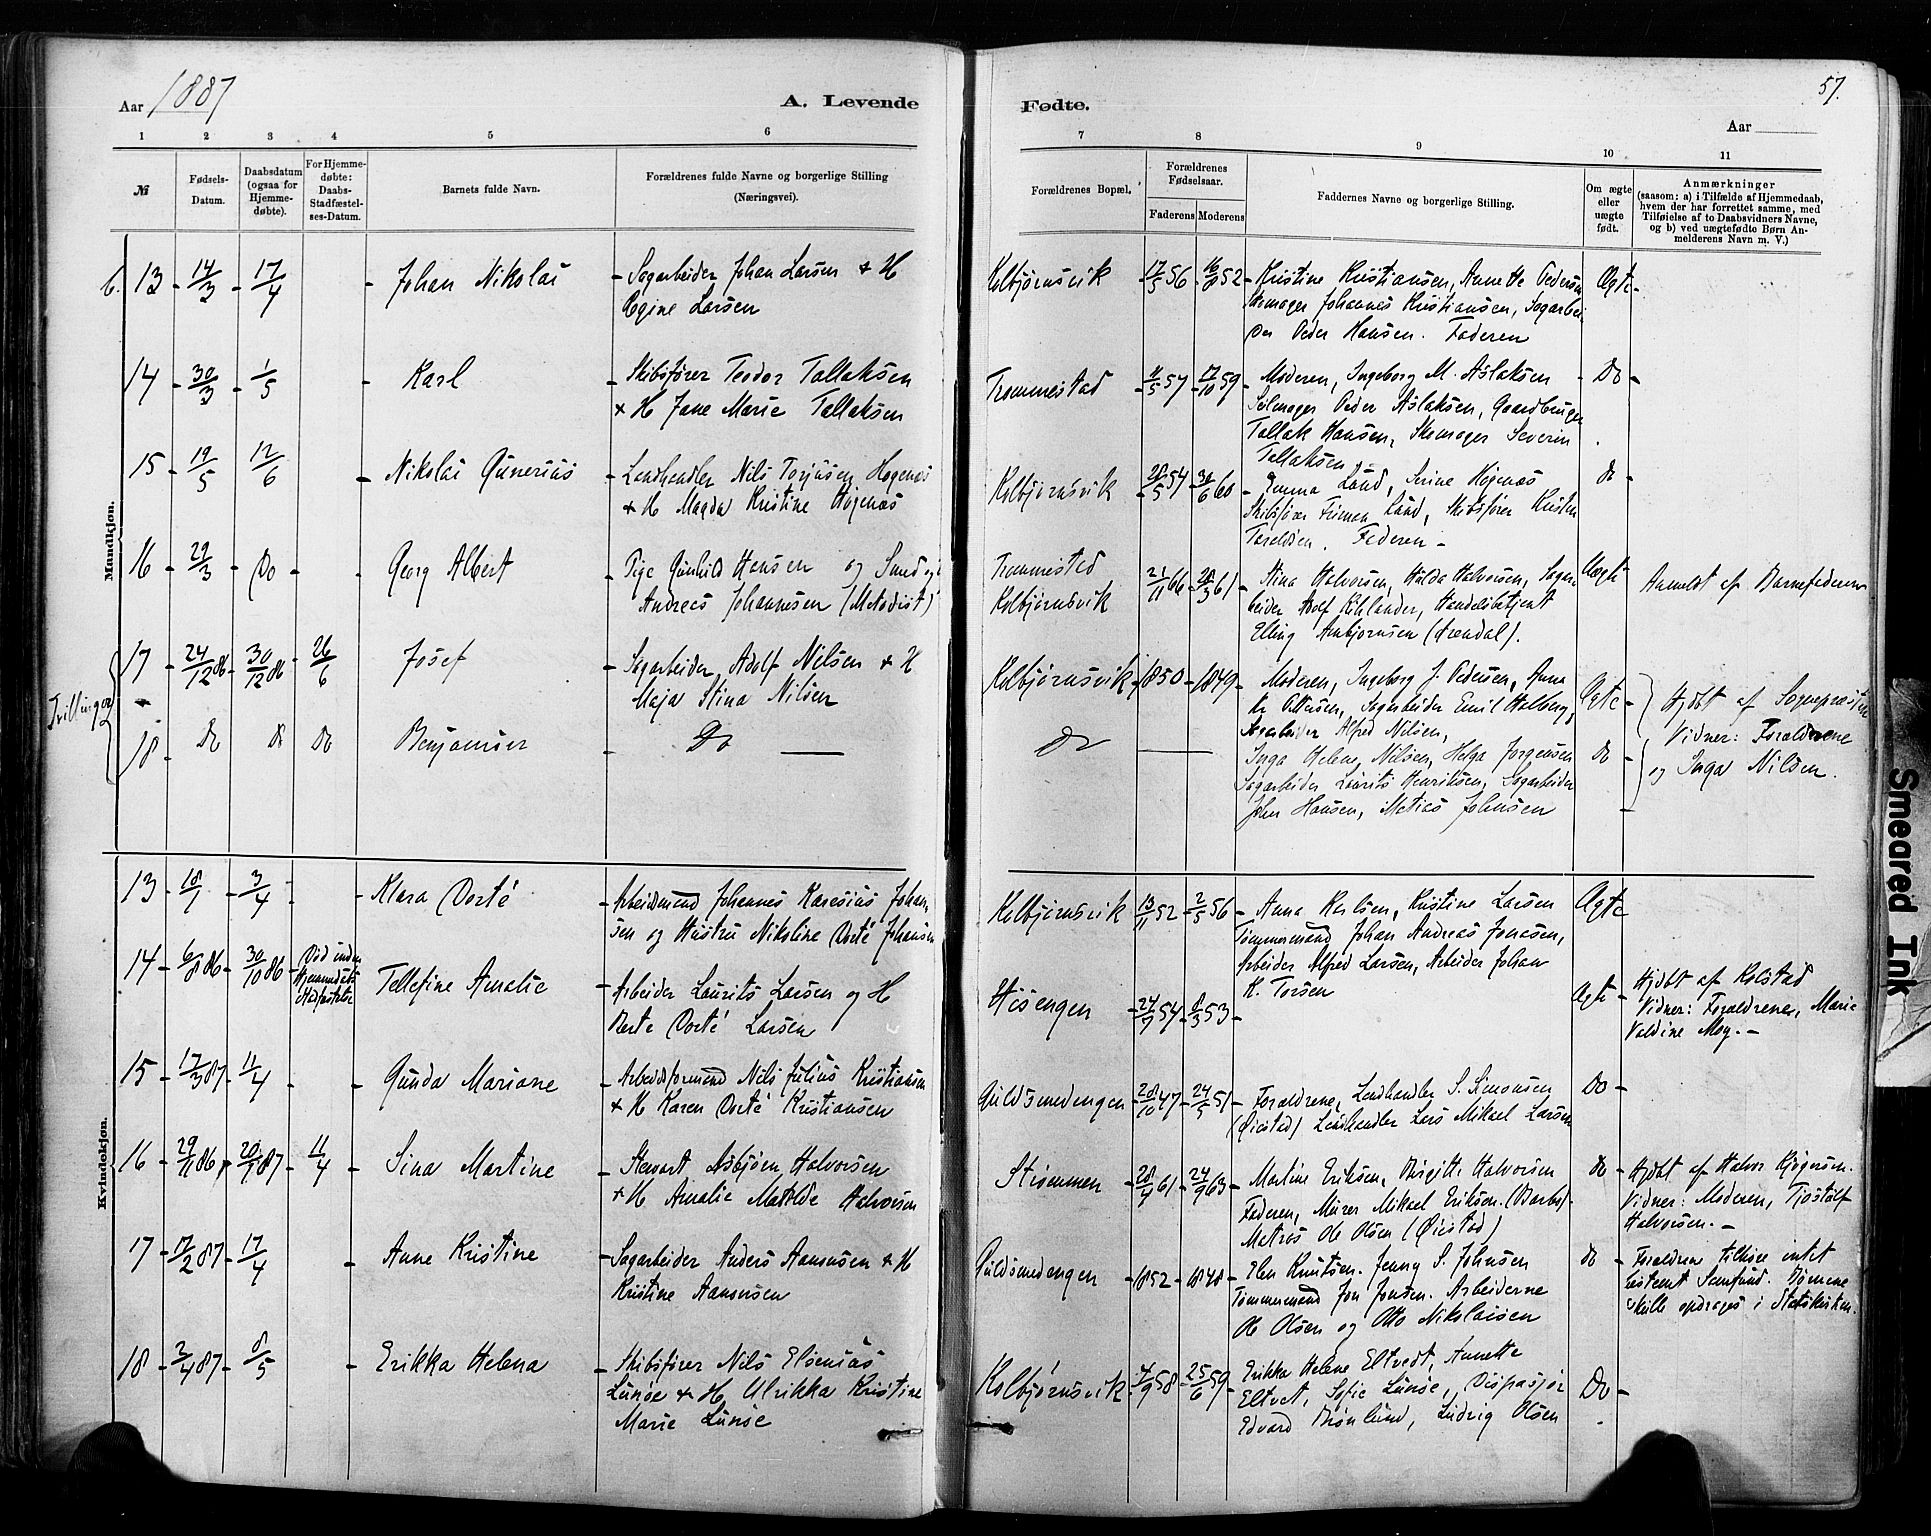 Aar 1887
A. Levende
Fødte.
57.
Aar
1 2 3 4 5 6 7 8 9 10 11
№
Fødsels-Datum.
Daabsdatum (ogsaa for Hjemmedøbte).
For Hjemmedøbte: Daabs-Stadfæstelses-Datum.
Barnets fulde Navn.
Forældrenes fulde Navne og borgerlige Stilling (Næringsvei).
Forældrenes Bopæl.
Forældrenes Fødselsaar.
Faderens Moderens
Faddernes Navne og borgerlige Stilling.
Om ægte eller uægte født.
Anmærkninger
(saasom: a) i Tilfælde af Hjemmedaab,
hvem der har forrettet samme, med
Tilføielse af to Daabsvidners Navne,
og b) ved uægtefødte Børn Anmelderens Navn m. V.)
Mandkjøn.
13 14/3 17/4 Johan Nikolai Sagarbeider Johan Larsen + H Kolbjørnsvik 17/5 56 16/8 52 Kristine Kristiansen, Annette Pedersen Ægte
Regine Larsen Skomager Johannes Kristiansen, Sagarbei
der Peder Hansen. Faderen
14 30/3 1/5 Karl Skibsfører Teodor Tallaksen Trommestad 11/5 57 17/10 59 Moderen, Ingeborg M. Aslaksen Do
+ H Jane Marie Tallaksen Seilmager Peder Aslaksen, Gaardbruger
Tallak Hansen, Skomager Severin
Tallaksen
15 19/5 12/6 Nikolai Gunerius Landhandler Nils Torjusen Høgenæs Kolbjørnsvik 28/5 54 30/6 60 Emma Lund, Serine Høgenæs Do
+ H Magda Kristine Høgenæs Skibsfører Lund, Skibsfører Kristen
Taraldsen. Faderen
16 29/3 Do Georg Albert Pige Gunhild Hansen og Smed Trommestad 21/11 66 28/3 61 Nina Halvorsen, Hulda Halvorsen, Sagar Uægte Anmeldt af Barnefaderen
Andreas Johannesen (Metodist) Kolbjørnsvik beider Adolf Kihlander, Handelsbetjent
Elling Arnbjørnsen (Arendal).
Tvillinger
17 24/12 86 30/12 86 26/6 Josef Sagarbeider Adolf Nilsen + H Kolbjørnsvik 1850 1849 Moderen, Ingeborg J. Pedersen, Anna Ægte Hjdbt af Sognepræsten
Maja Stina Nilsen Kr Ottersen, Sagarbeider Emil Halberg, Vidner: Forældrene
Sagarbeider Alfred Nilsen,
18 Do Do Do Benjamin Do Do Inga Helene Nilsen, Helga Jørgensen Do og Inga Nilsen.
Sagarbeider Laurits Henriksen, Sagarbeider
John Hansen, Matias Johnsen
Kvindekjøn.
13 18/1 3/4 Klara Dorté Arbeidsmand Johannes Johan Kolbjørnsvik 13/11 52 2/5 56 Anna Karlsen, Kristine Larsen Ægte
sen og Hustru Nikoline Dorté Johansen Tømmermand Johan Andreas Jonassen,
Arbeider Alfred Larsen, Arbeider Johan
K. Torsen
14 6/8 86 30/10 86 Død inden Tellefine Amalie Arbeider Laurits Larsen og H Hisengen 24/9 54 8/3 53 Ægte Hjdbt af Kolstad
Berte Dorté Larsen Vidner: Forældrene, Marie
Valdine Moy.
15 17/3 87 11/4 Gunda Mariane Arbeidsformand Nils Julius Kristiansen Guldsmedengen 28/10 47 24/5 51 Forældrene, Landhandler S. Simonsen Do
+ H Karen Dorté Kristiansen (Øiestad) Landhandler Lars Mikael Larsen
16 29/11 86 20/1 87 11/4 Sina Martine Stewart Asbjørn Halvorsen Strømmen 28/4 61 24/9 63 Martine Eriksen, Birgitte Halvorsen Do Hjdbt af Halvor Kjøgersen.
+ H Amalie Matilde Halvorsen Faderen, Murer Mikael Eriksen (Barbo) Vidner: Moderen, Tjøstolf
Matros Ole Olsen (Øiestad) Halvorsen.
17 17/2 87 17/4 Anne Kristine Sagarbeider Anders Aanonsen + H Guldsmedengen 1852 1848 Elen Knutsen. Jenny S. Johnsen Do Forældrene tilhøre intet
Kristine Aanonsen Tømmermand Jon Jonsen. Arbeiderne bestemt Samfund. Børnene
Ole Olsen og Otto Nikolaisen skulle opdrages i Statskirken.
18 3/4 87 8/5 Erikka Helena Skibsfører Nils Elsenius Kolbjørnsvik 4/9 58 25/6 59 Erikka Helene Eltvedt, Annette Do
Lunøe + H Ulrikka Kristine Eltvet, Sofie Lunøe, Dispasjør
Marie Lunøe Edvard Brønlund, Ludvig Olsen
Smeared Ink